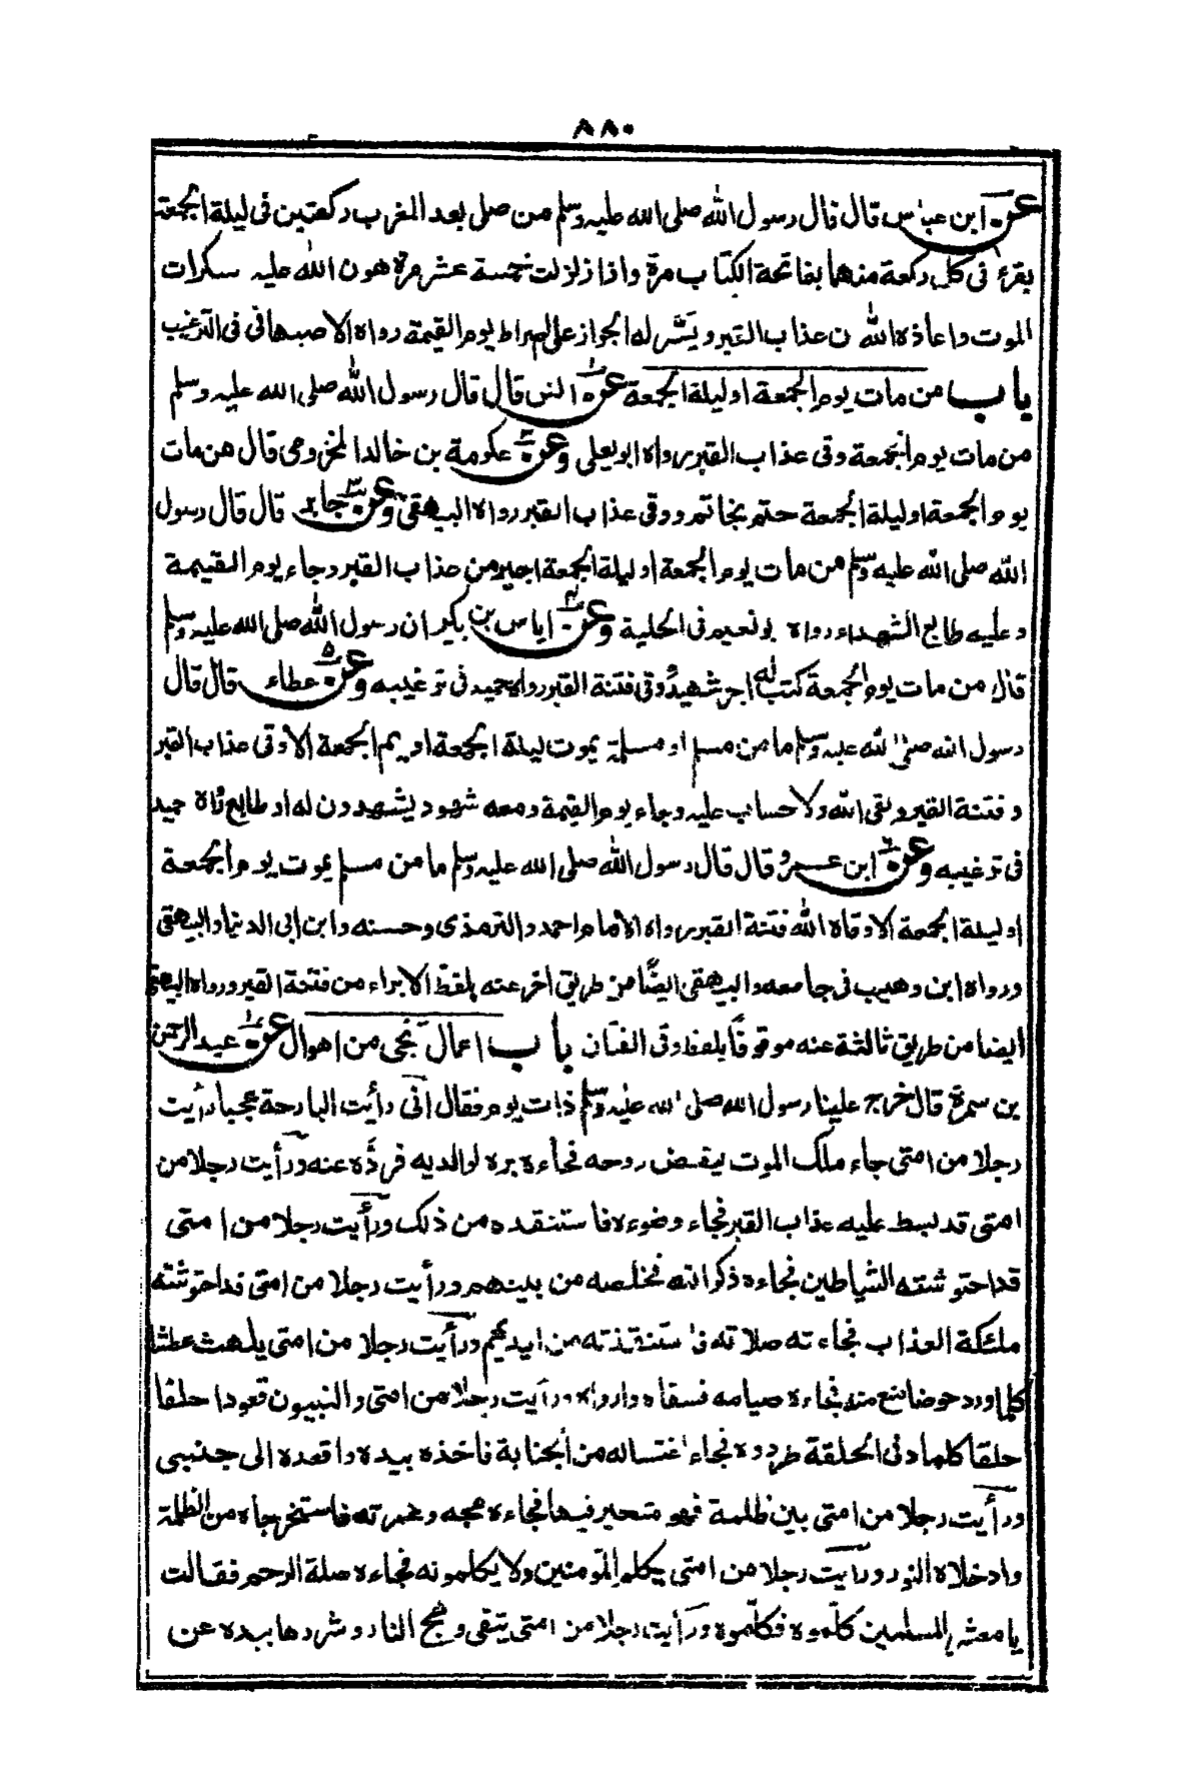 ٨٨٠
عن ابن عباس قال قال رسول الله صلى الله عليه وسلم من صلى بعد المغرب ركعتين فى ليلة الجمعة
يقرء فى كل ركعة منهما بفاتحة الكتاب مرة واذا زلزلت خمسة عشر مرة هون الله عليه سكرات
الموت واعاذه الله من عذاب القبر ويسّر له الجواز على الصراط يوم القيمة رواه الاصبهانى فى الترغيب
باب من مات يوم الجمعة او ليلة الجمعة عن انس قال قال رسول الله صلى الله عليه وسلم
من مات يوم الجمعة وقى عذاب القبر رواه ابو يعلى وعن عكرمة بن خالد المخزومى قال من مات
يوم الجمعة او ليلة الجمعة ختم بخاتم ووقى عذاب القبر رواه البيهقى وعن جابر قال قال رسول
الله صلى الله عليه وسلم من مات يوم الجمعة او ليلة الجمعة اجير من عذاب القبر وجاء يوم القيمة
وعليه طابع الشهداء رواه بو نعيم فى الحلية وعن اياس بن بكير ان رسول الله صلى الله عليه وسلم
قال من مات يوم الجمعة كتب له اجر شهيد ووقى فتنة القبر رواه حميد فى ترغيبه وعن عطاء قال قال
رسول الله صلى الله عليه وسلم ما من مسلم او مسلمة يموت ليلة الجمعة او يوم الجمعة الا وقى عذاب القبر
وفتنة القبر ويقى الله ولا حساب عليه وجاء يوم القيمة ومعه شهود يشهدون له او طابع رواه حميد
فى ترغيبه وعن ابن عمرو قال قال رسول الله صلى الله عليه وسلم ما من مسلم يموت يوم الجمعة
او ليلة الجمعة الا وقاه الله فتنة القبر رواه الامام احمد والترمذى وحسنه وابن ابى الدنيا والبيهقى
ورواه ابن وهيب فى جامعه والبيهقى ايضًا من طريق اخر عنه بلفظ الا برء من فتنة القبر ورواه البيهقى
ايضا من طريق ثالثة عنه موقوفًا بلفظ وقى الفتان باب اعمال تنجى من اهوال عن عبد الرحمن
بن سمرة قال خرج علينا رسول الله صلى الله عليه وسلم ذات يوم فقال انّى رأيت البارحة عجبا رأيت
رجلا من امتى جاء ملك الموت ليقبض روحه فجاءه بره لوالديه فردّه عنه ورأيت رجلا من
امتى قد بسط عليه عذاب القبر فجاء وضوءه فاستنقذه من ذلك ورأيت رجلا من امتى
قد احتوشته الشياطين فجاءه ذكر الله فخلصه من بينهم ورأيت رجلا من امتى قد احتوشته
ملئكة العذاب فجاءته صلاته فاستنقذته من ايديهم ورأيت رجلا من امتى يلهث عطشا
كلما ورد حوضا منع منه فجاءه صيامه فسقاه وارواه ورأيت رجلا من امتى والنبيون قعودا حلقا
حلقا كلما دنى الحلقة طردوه فجاء اغتساله من الجنابة فاخذه بيده واقعده الى جنبى
ورأيت رجلا من امتى بين ظلمة فهو متحير فيها فجاءه حجه وعمرته فاستخرجاه من الظلمة
وادخلاه النور ورأيت رجلا من امتى يكلم المؤمنين ولا يكلمونه فجاءه صلة الرحم فقالت
يا معشر المسلمين كلّموه فكلّموه ورأيت رجلا من امتى يتقى وهج النار وشررها بيده عن